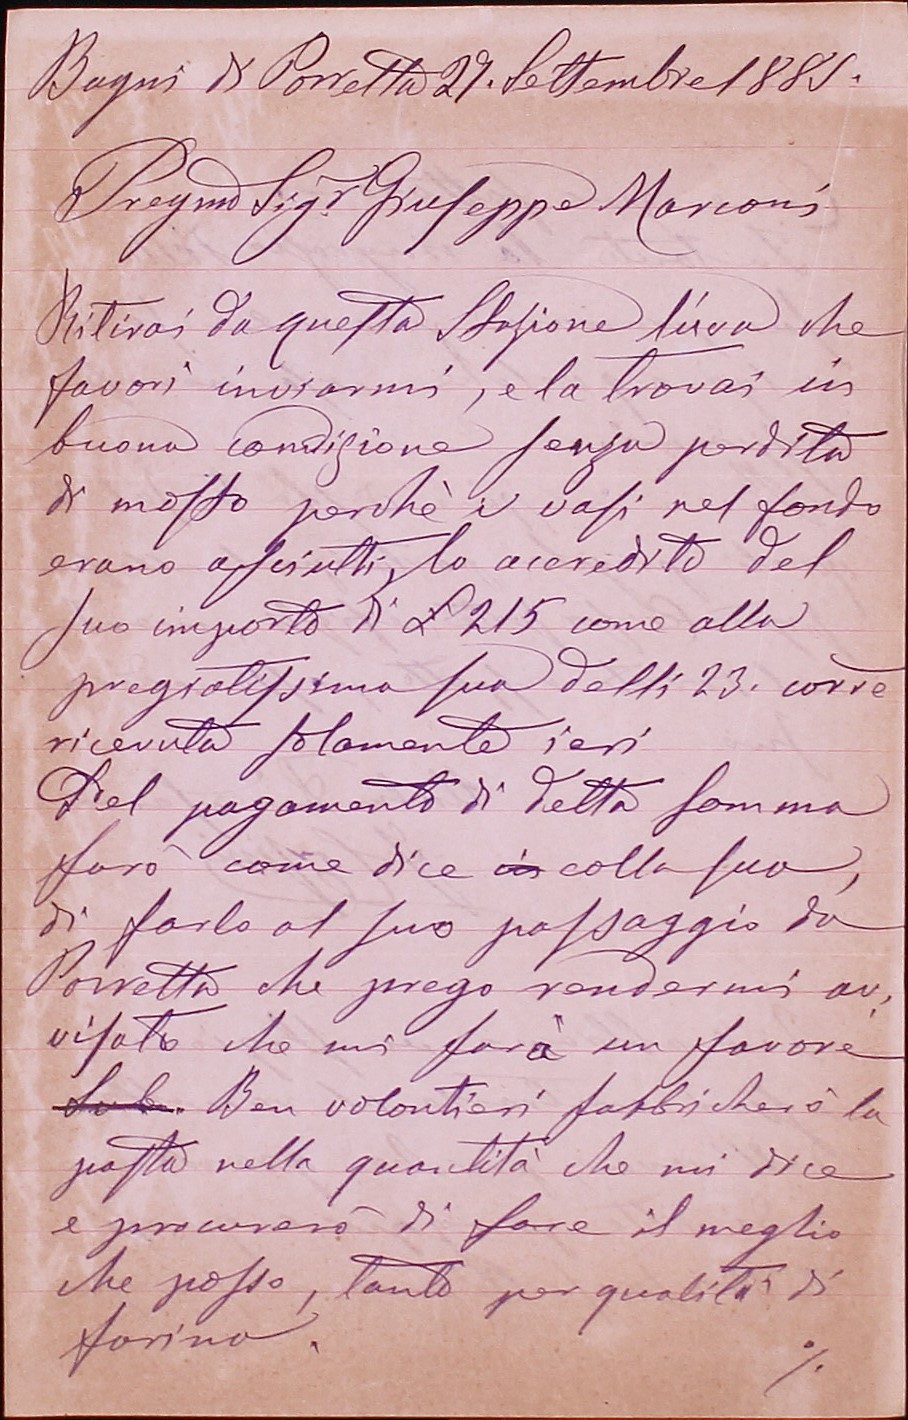 Bagni di Porretta 27. Settembre 1885.
Pregmo Sigr Giuseppe Marconi
Ritirai da questa Stazione l'uva che
favorì inviarmi, e la trovai in
buona condizione senza perdita
di mosto perchè i vasi nel fondo
erano asciutti, lo accredito del
suo importo di £ 215 come alla
pregiatissima sua delli 23. corre
ricevuta solamente ieri
Del pagamento di detta somma
farò come dice in colla sua,
di farlo al suo passaggio da
Porretta che prego rendermi av,
visato che mi farà un favore
Ben volontieri fabbricherò la
pasta nella quantità che mi dice
e procurerò di fare il meglio
che posso, tanto per qualità di
farina.
%.